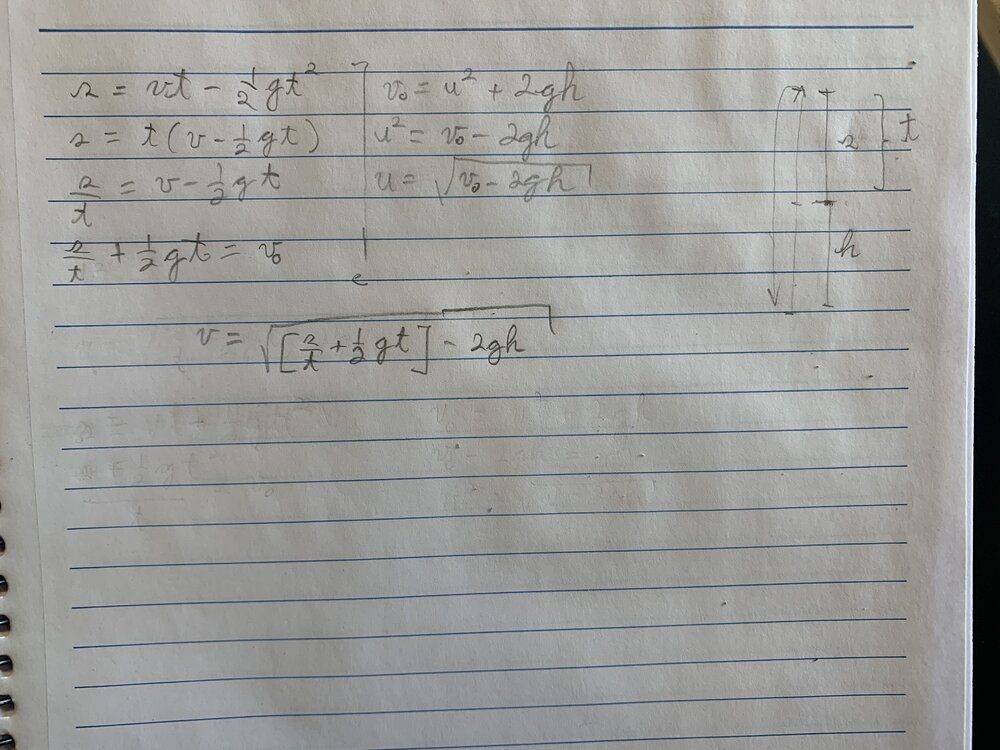 s = vt - 1/2 gt²
s = t(v - 1/2 gt)
s/t = v - 1/2 gt
s/t + 1/2 gt = v₀
v₀ = u² + 2gh
u² = v₀ - 2gh
u = √(v₀ - 2gh)
v = √([s/t + 1/2 gt] - 2gh)
s
t
h